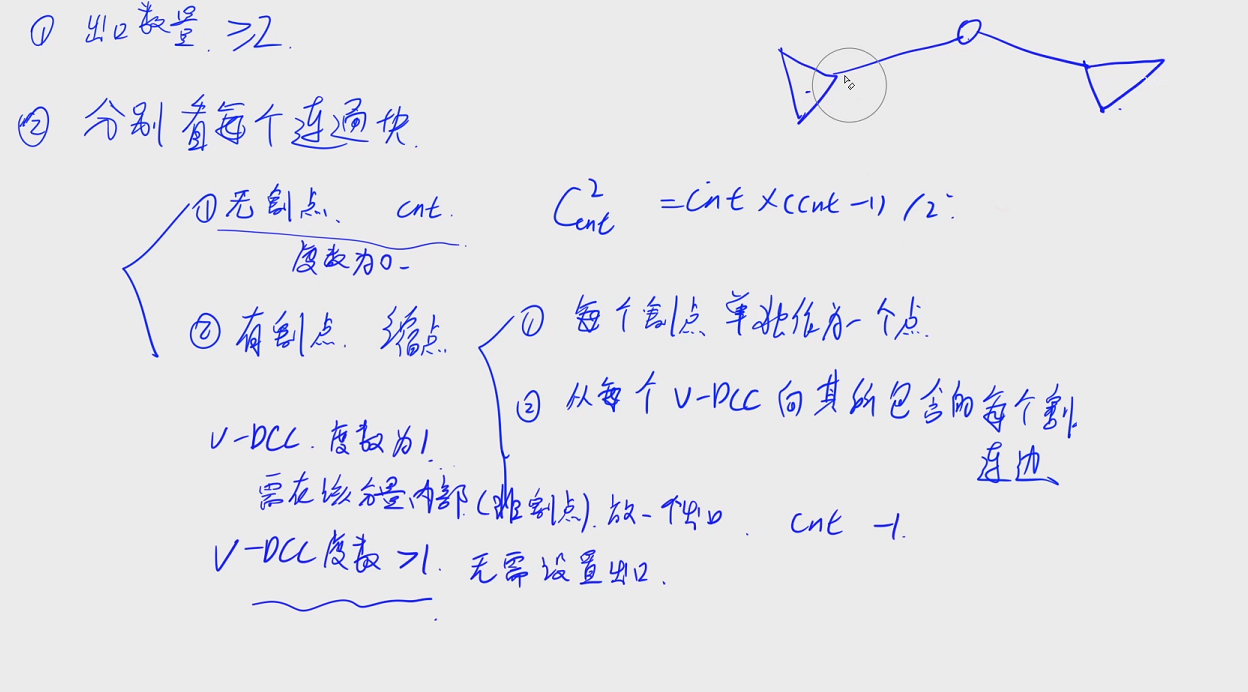 ① 出口数量. ≥2.
② 分别看每个连通块.
① 无割点、 cnt. C²cnt = cnt × (cnt -1) / 2.
度数为0.
② 有割点. 缩点
① 每个割点单独作为一个点.
② 从每个 V-DCC 向其所包含的每个割
连边
V-DCC. 度数为1.
需在该分量内部(非割点). 放一个出口. cnt -1.
V-DCC 度数 >1. 无需设置出口.